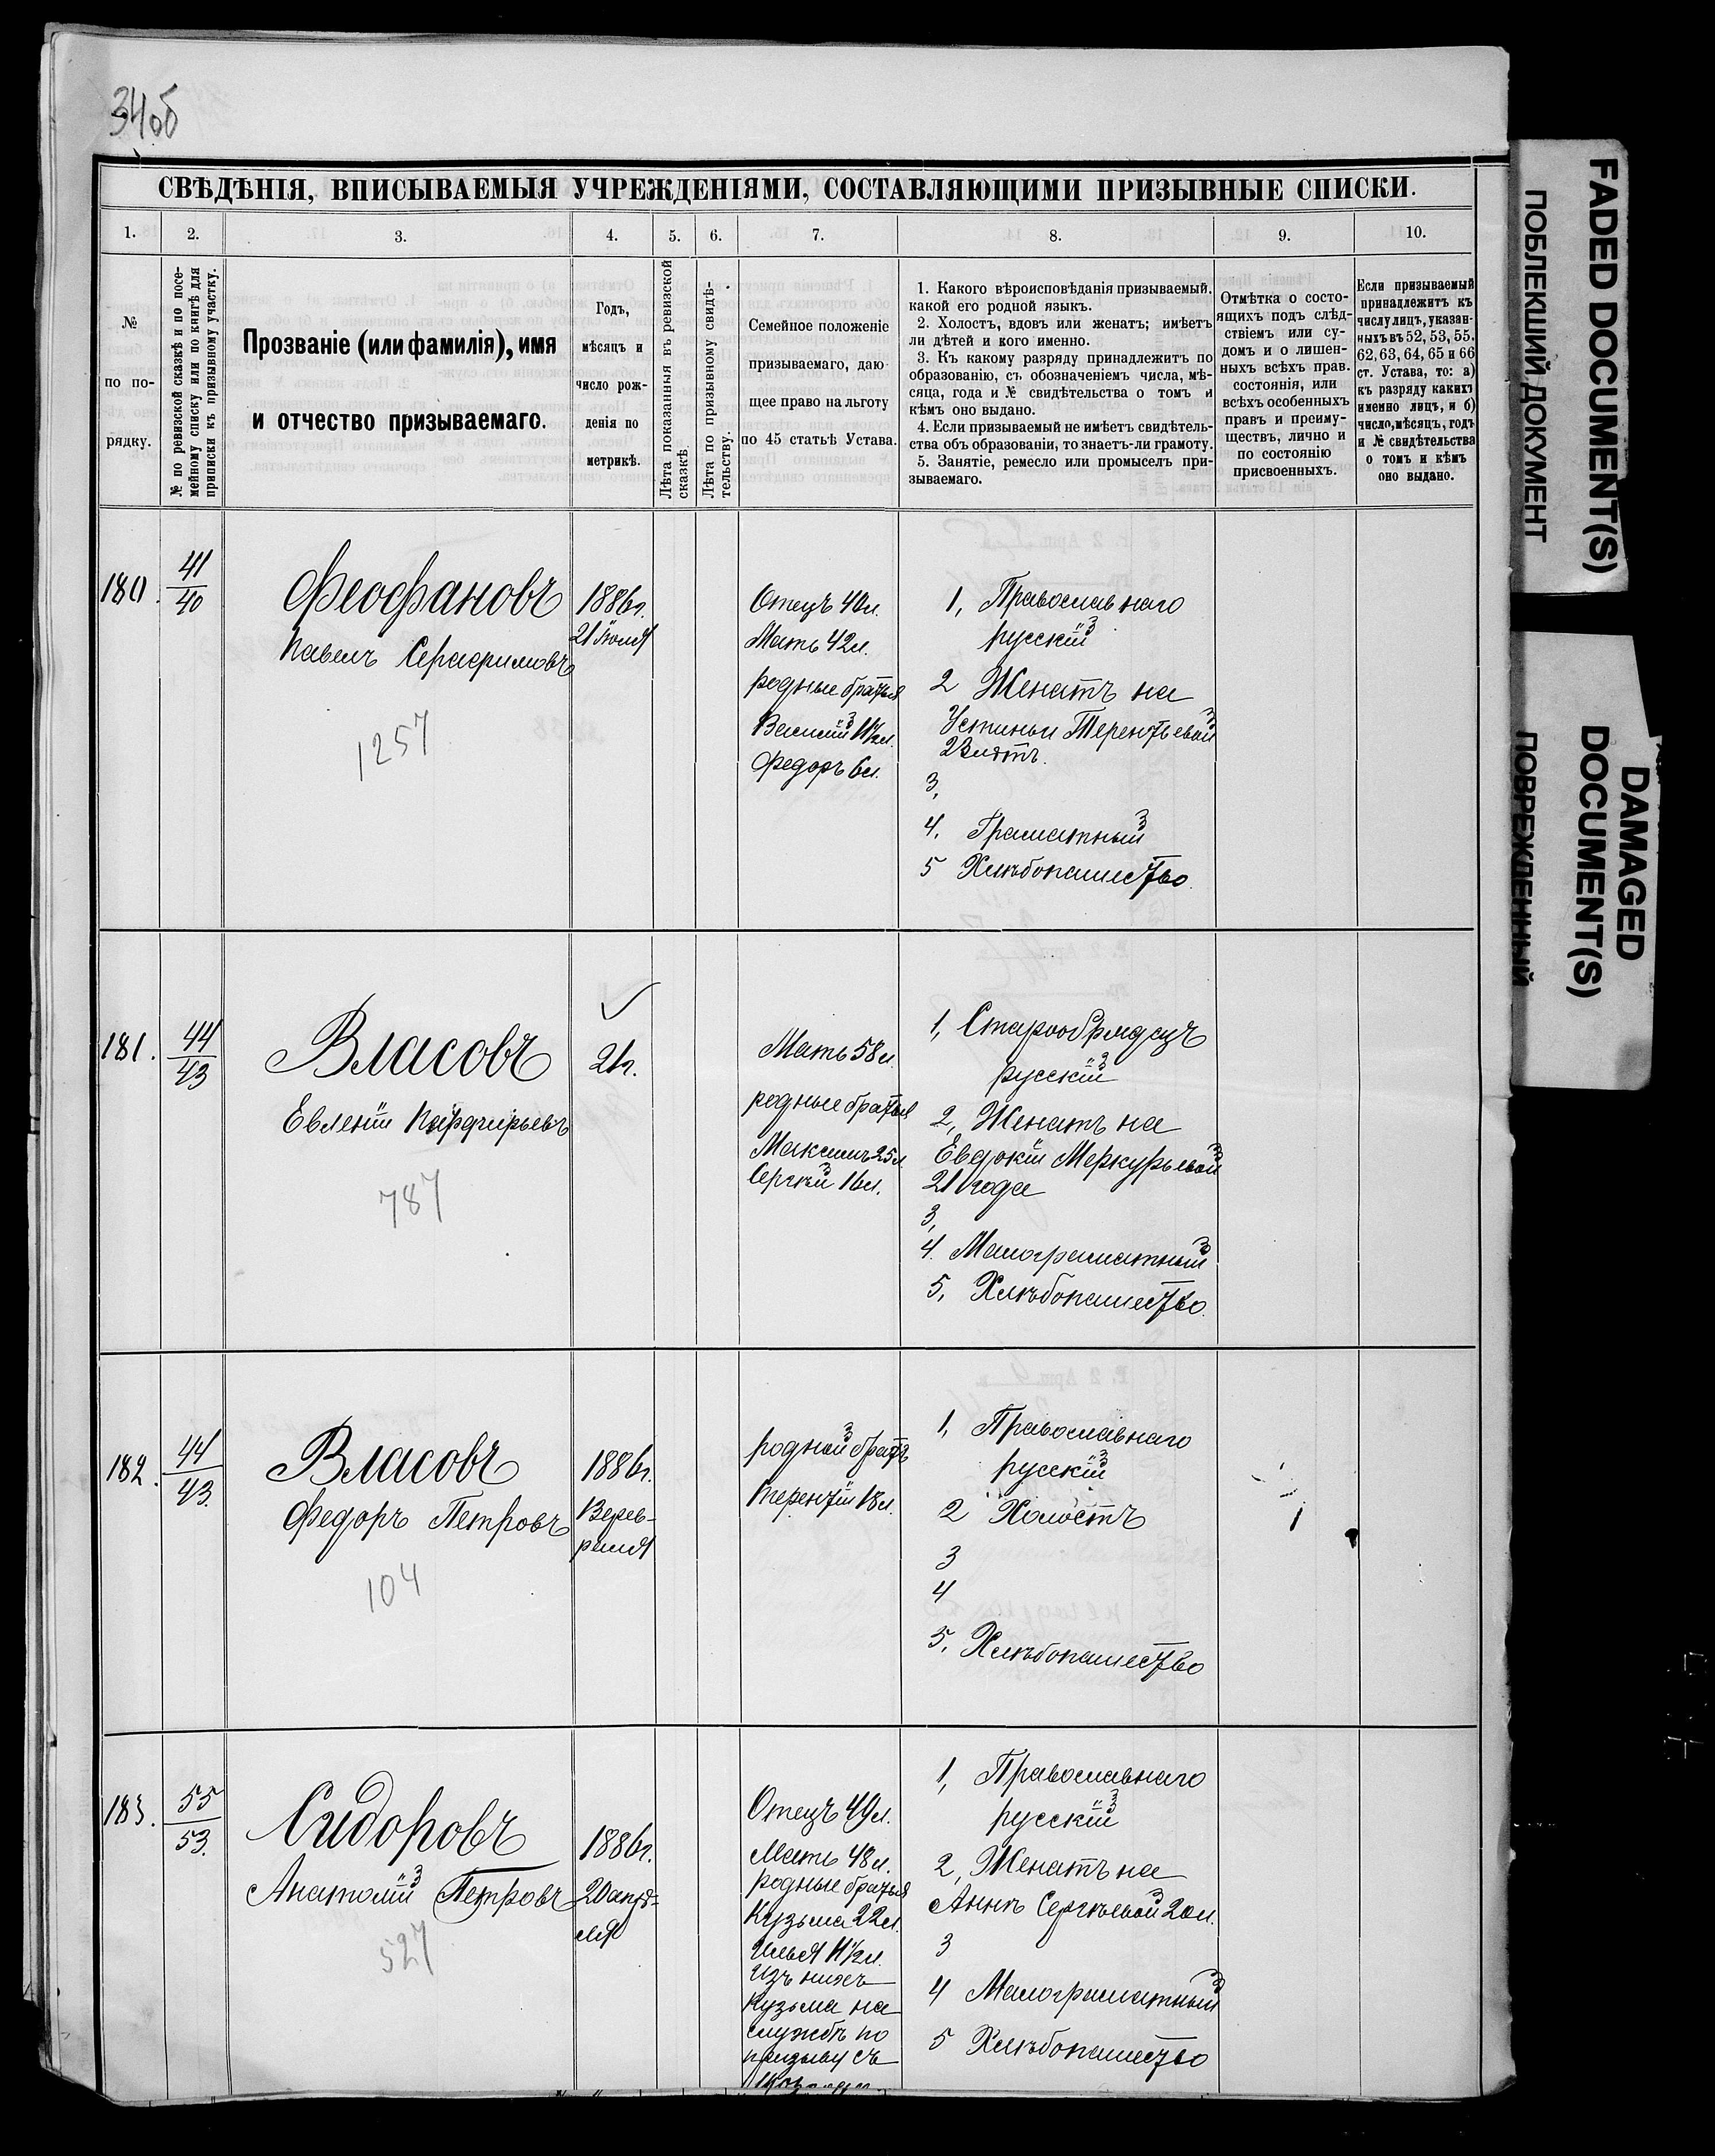 34об
СВѢДѢНІЯ, ВПИСЫВАЕМЫЯ УЧРЕЖДЕНІЯМИ, СОСТАВЛЯЮЩИМИ ПРИЗЫВНЫЕ СПИСКИ.
1. 2. 3. 4. 5. 6. 7. 8. 9. 10.
№
по по-
рядку.
№ по ревизской сказкѣ и по посе-
мейному списку или по книгѣ для
приписки къ призывному участку.
Прозваніе (или фамилія), имя
и отчество призываемаго.
Годъ,
мѣсяцъ и
число рож-
денія по
метрикѣ.
Лѣта показанныя въ ревизской
сказкѣ.
Лѣта по призывному свидѣ-
тельству.
Семейное положеніе
призываемаго, даю
щее право на льготу
по 45 статьѣ Устава.
1. Какого вѣроисповѣданія призываемый,
какой его родной языкъ.
2. Холостъ, вдовъ или женатъ; имѣетъ
ли дѣтей и кого именно.
3. Къ какому разряду принадлежитъ по
образованію, съ обозначеніемъ числа, мѣ-
сяца, года и № свидѣтельства о томъ и
кѣмъ оно выдано.
4. Если призываемый не имѣетъ свидѣтель-
ства объ образованіи, то знаетъ-ли грамоту.
5. Занятіе, ремесло или промыселъ при-
зываемаго.
Отмѣтка о состо-
ящихъ подъ слѣд-
ствіемъ или су-
домъ и о лишен-
ныхъ всѣхъ прав.
состоянія, или
всѣхъ особенныхъ
правъ и преиму-
ществъ, лично и
по состоянію
присвоенныхъ.
Если призываемый
принадлежитъ къ
числу лицъ, указан-
ныхъ въ 52, 53, 55,
62, 63, 64, 65 и 66
ст. Устава, то: а)
къ разряду какихъ
именно лицъ, и б)
число, мѣсяцъ, годъ
и № свидѣтельства
о томъ и кѣмъ
оно выдано.
180.
41
40
Феофановъ
Павелъ Серафимовъ
1257
1886г.
21 Іюля
Отецъ
Мать 42л.
родные братья
Василій 11½л.
Федоръ 6л.
1, Православнаго
русскій
2 Женатъ на
Устиньи Терентьевой
3,
4. Граматный
5 Хлѣбопашество.
181.
44
43
Власовъ
Евленій Парфирьевъ
787
21г.
Мать 58л.
родные братья
Максимъ 25л.
Сергѣй 16л.
1, Старообрядецъ
русскій
2, Женатъ на
Евдокіи Меркурьевой
21 года
3,
4. Малограматный
5, Хлѣбопашество.
182.
44
43.
Власовъ
Федоръ Петровъ
104
1886г.
родной братъ
Терентій 18л.
1, Православнаго
русскій
2 Холостъ
3
4
5, Хлѣбопашество
183.
55
53.
Сидоровъ
Анатолій Петровъ
527
1886г.
20 апрѣ-
ля
Отецъ 49л.
Мать 48л.
родные братья
Кузьма 22л.
Илья 11½л.
Изъ нихъ
Кузьма на
службѣ по
призыву съ
1, Православнаго
русскій
2, Женатъ на
Аннѣ Сергѣевой 20л.
3
4 Малограматный
5 Хлѣбопашество
FADED DOCUMENT(S)
ПОБЛЕКШИЙ ДОКУМЕНТ
DAMAGED
DOCUMENT(S)
ПОВРЕЖДЕННЫЙ